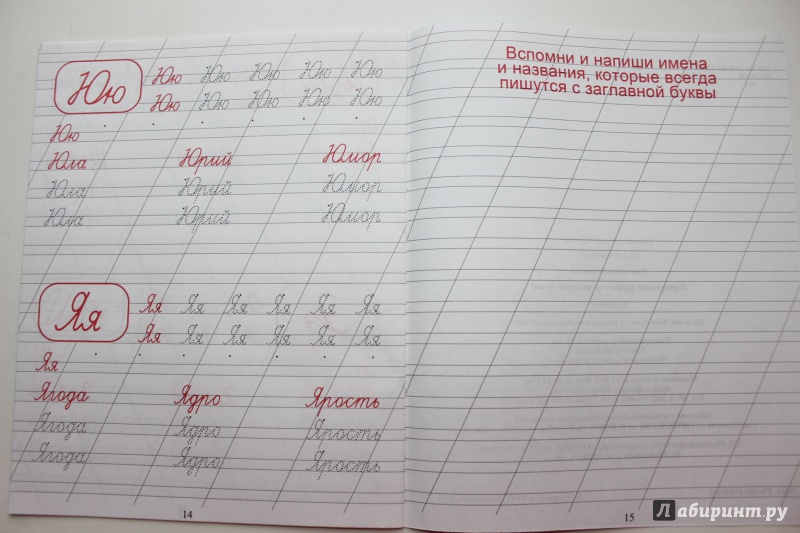 Юю Юю Юю Юю Юю Юю
Юю Юю Юю Юю Юю
Юю
Юла Юрий Юмор
Юла Юрий Юмор
Юла Юрий Юмор
Яя Яя Яя Яя Яя Яя Яя
Яя Яя Яя Яя Яя Яя
Яя
Ягода Ядро Ярость
Ягода Ядро Ярость
Ягода Ядро Ярость
14
Вспомни и напиши имена
и названия, которые всегда
пишутся с заглавной буквы
15
Лабиринт.ру